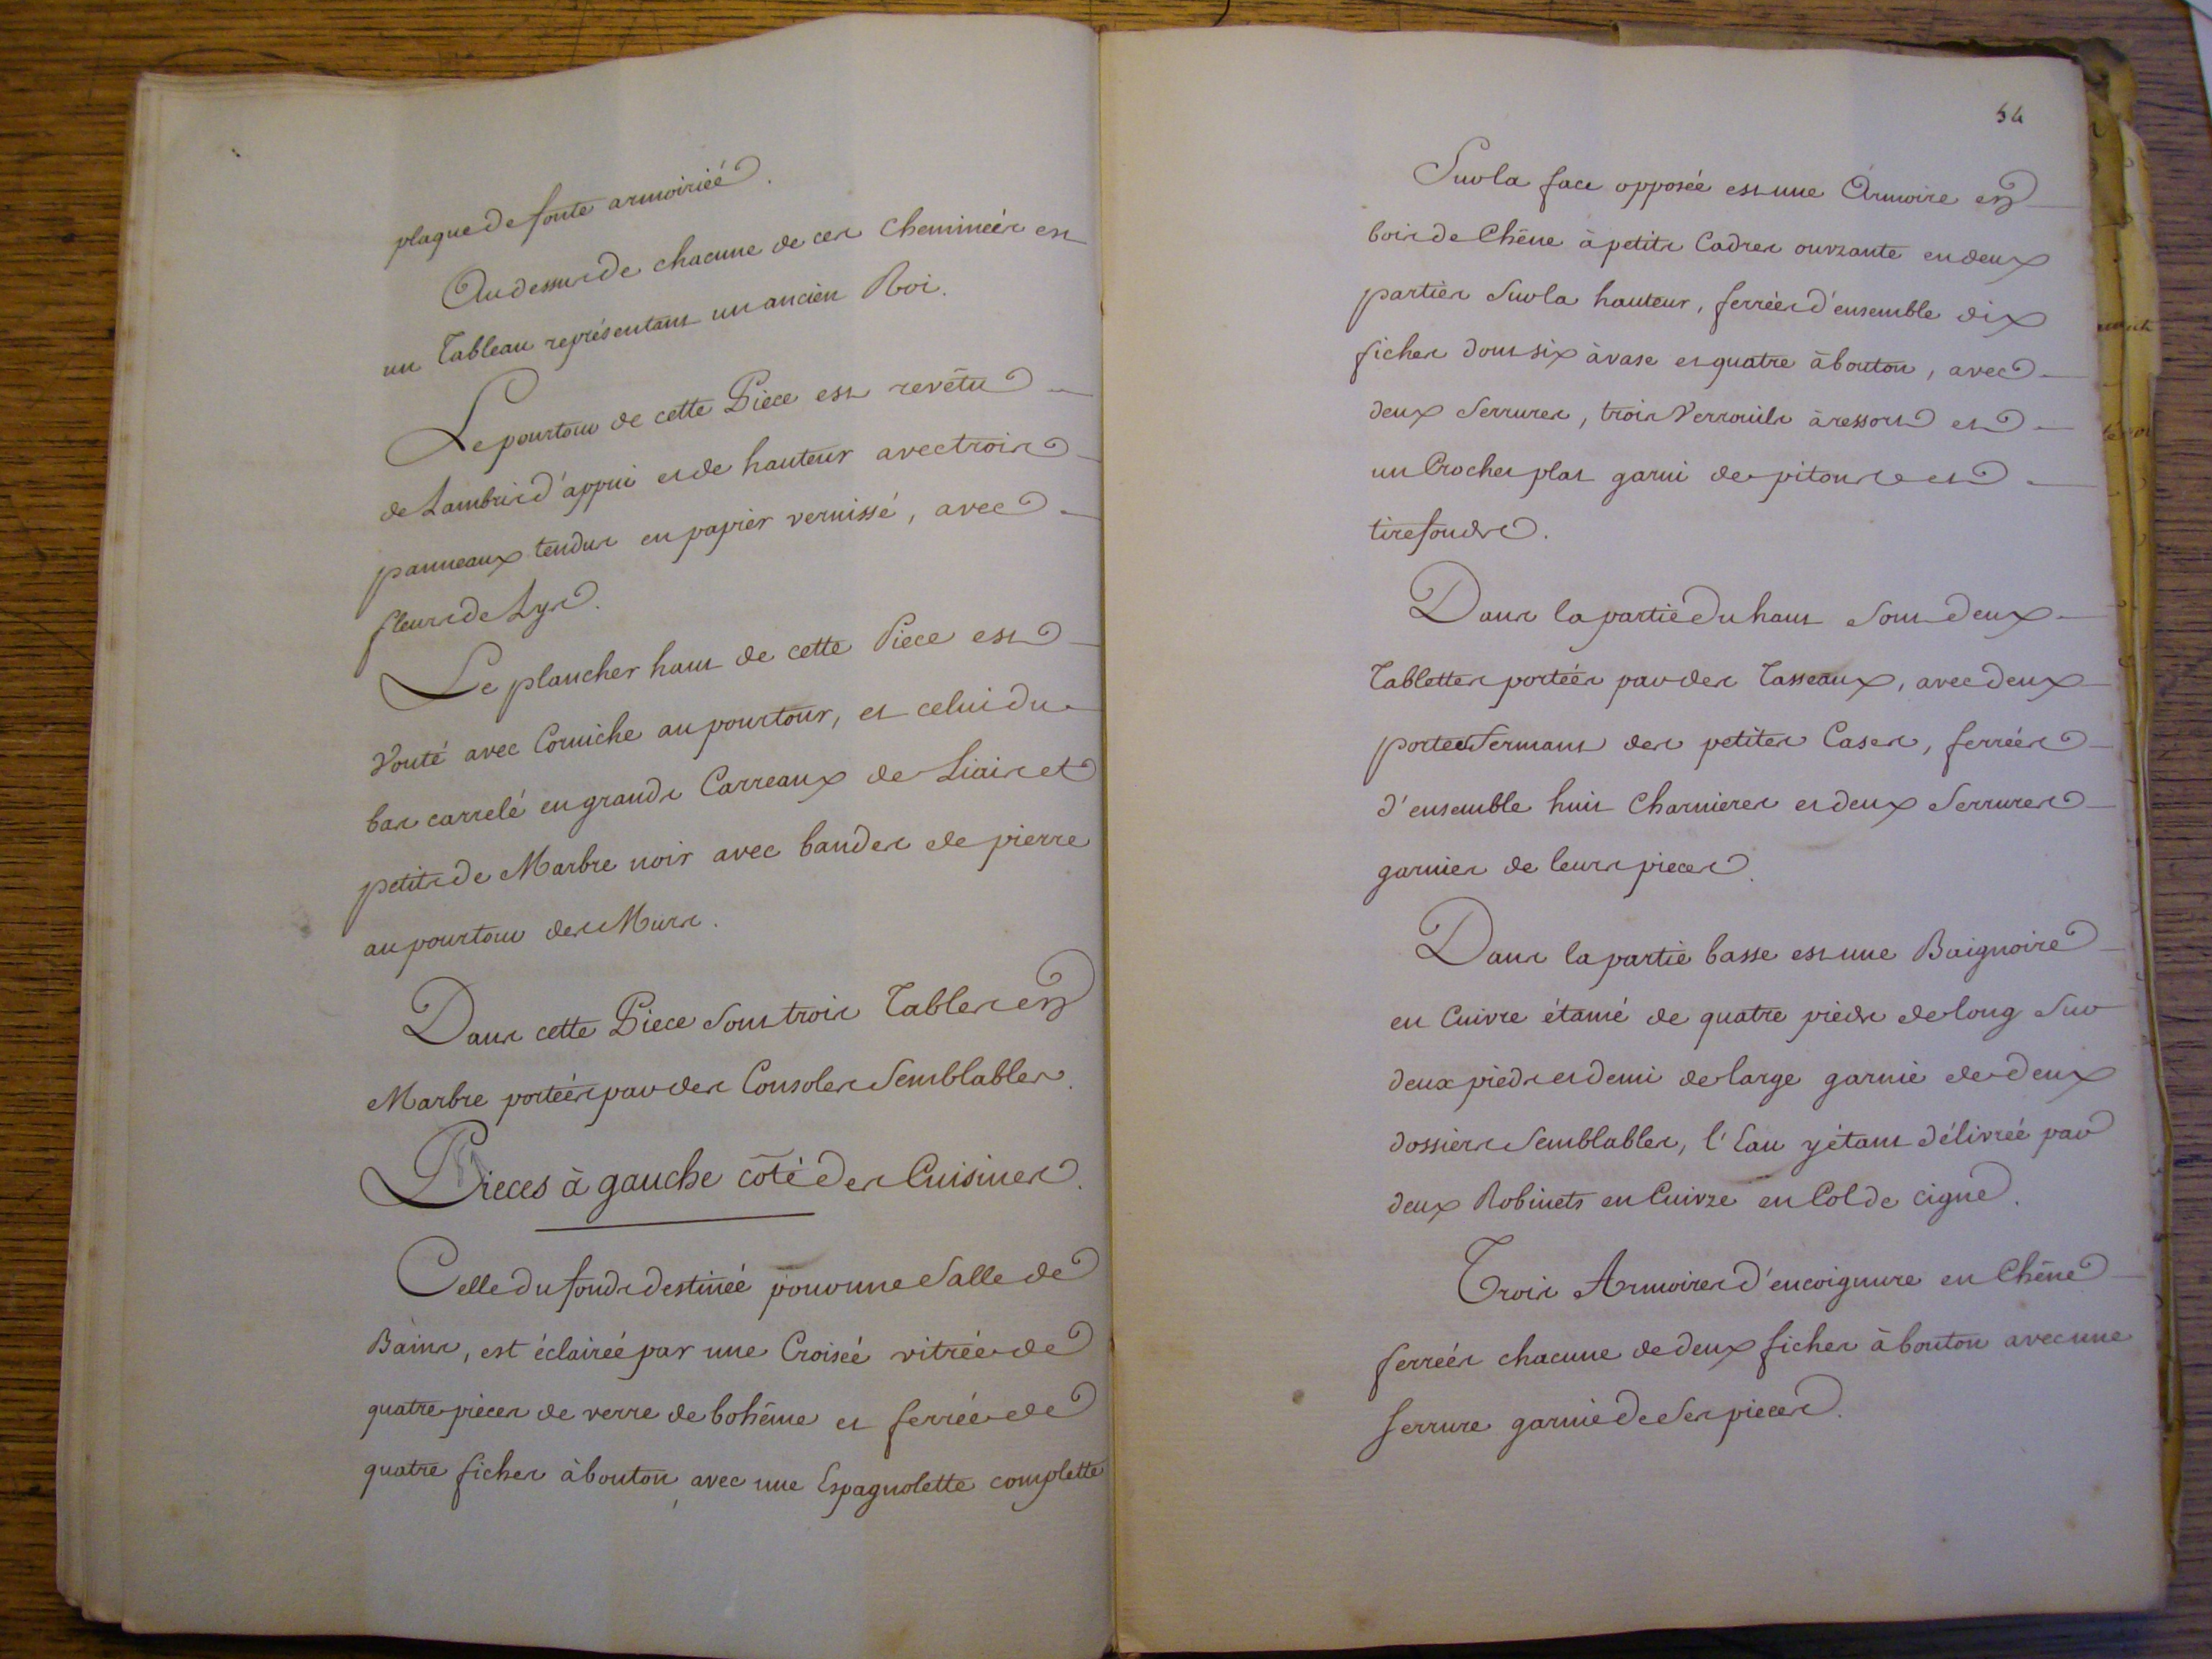 plaque de fonte armoiriée.
Au dessus de chacune de ces Cheminées est
un Tableau représentant un ancien Roi.
Le pourtour de cette Piece est revêtu
de Lambris d'appui et de hauteur avec trois
panneaux tendus en papier vernissé, avec
fleurs de Lys.
Le plancher haut de cette Piece est
Vouté avec Corniche au pourtour, et celui du
bas carrelé en grands Carreaux de Liais et
petits de Marbre noir avec bandes de pierre
au pourtour des Murs.
Dans cette Piece sont trois Tables en
Marbre portées par des Consoles Semblables.
Pieces à gauche côté des Cuisines.
Celle du fonds destinée pour une Salle de
Bains, est éclairée par une Croisée vitrée de
quatre pièces de verre de bohême et ferrée de
quatre fiches à bouton avec une Espagnolette complette
54
Sur la face opposée est une Armoire en
bois de Chêne à petits Cadres ouvrante en deux
parties Sur la hauteur, ferrées d'ensemble dix
fiches dont six à vase et quatre à bouton, avec
deux Serrures, trois Verrouils à ressort et
un Crochet plat garni de pitons et
tirefonds.
Dans la partie du haut Sont deux
Tablettes portées par des Tasseaux, avec deux
portes fermant des petites Cases, ferrées
d'ensemble huit Charnieres et deux Serrures
garnies de leurs pieces.
Dans la partie basse est une Baignoire
en Cuivre étamé de quatre pieds de long Sur
deux pieds et demi de large garnie de deux
dossiers Semblables, l'Eau y étant délivrée par
deux Robinets en Cuivre en Col de cigne.
Trois Armoires d'encoignure en Chêne
ferrées chacune de deux fiches à bouton avec une
serrure garnie de Ses pieces.